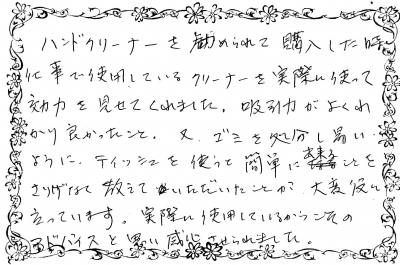 ハンドクリーナーを勧められて購入した時
仕事で使用しているクリーナーを実際に使って
効力を見せてくれました。吸引力がよくわ
かり良かったこと。又、ゴミを処分し易い
ように、ティッシュを使って簡単に出来ることを
さりげなく教えていただいたことが、大変役に
立っています。実際に使用しているからこその
アドバイスと思い感心させられました。